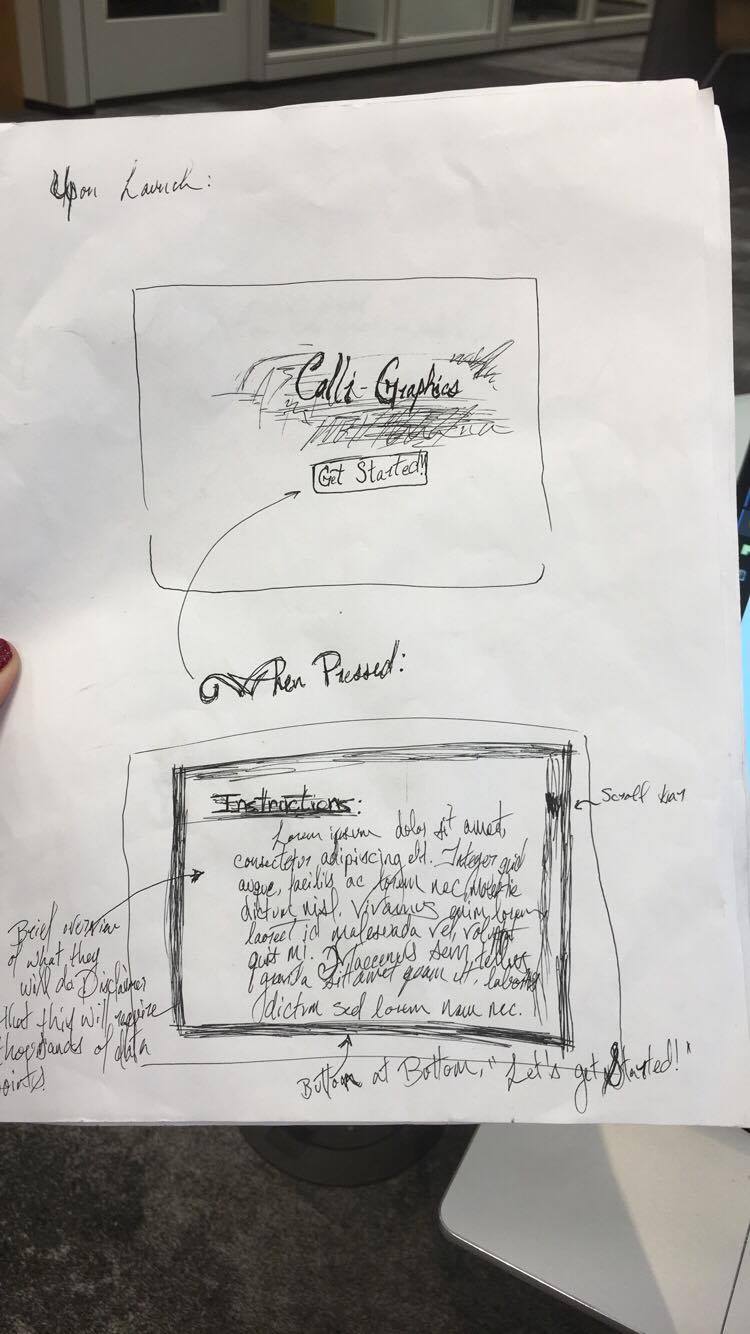 Upon Launch:
Calli-Graphics
Get Started!
When Pressed:
Instructions:
Lorem ipsum dolor sit amet,
consectetur adipiscing elit. Integer quid
augue, facilis ac lorem nec, molestie
dictum nisl. Vivamus enim lorem
laoreet id malesuada vel, volutpat
quit mi. Maecenas sem tellus,
gravida sit amet quam et, lobortis
dictum sed lorem nam nec.
Scroll bar
Brief overview
of what they
will do Disclaimer
that they will require
thousands of data
points.
Button at Bottom, "Let's get Started!"